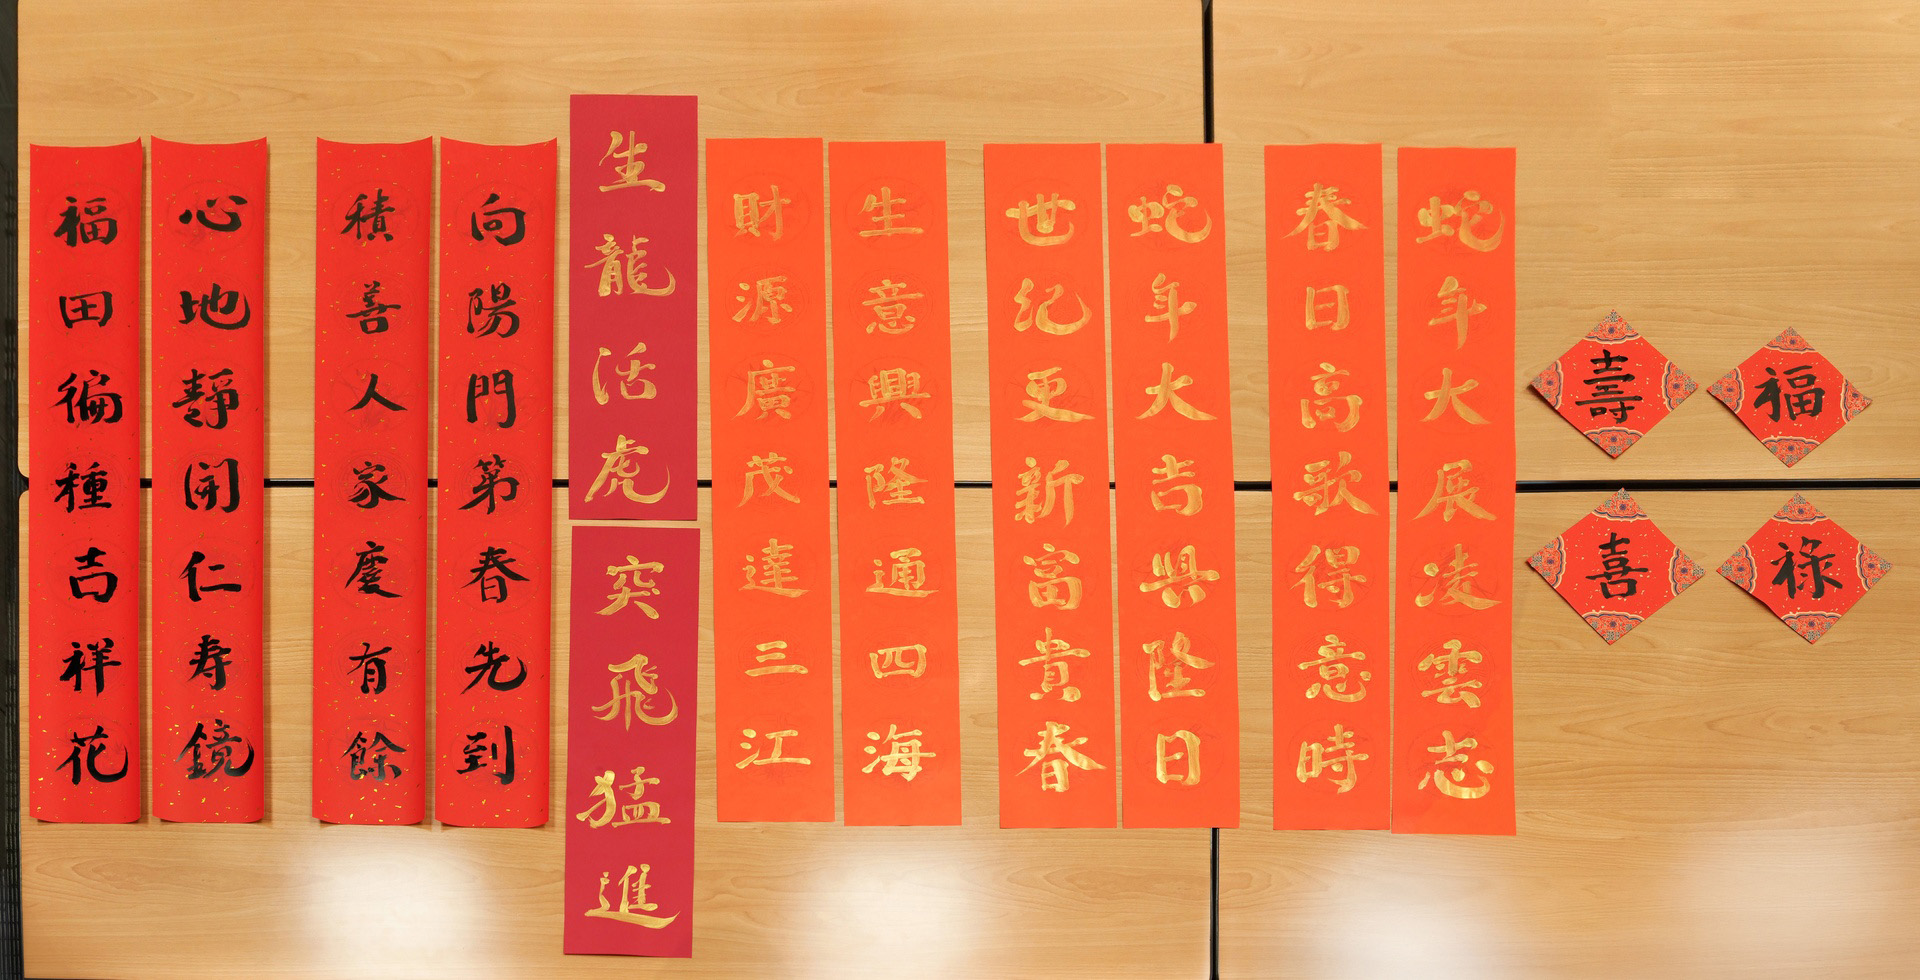 福
祿
壽
喜
蛇年大展凌雲志
春日高歌得意時
蛇年大吉興隆日
世纪更新富貴春
生意興隆通四海
財源廣茂達三江
生龍活虎
突飛猛進
向陽門第春先到
積善人家慶有餘
心地靜開仁寿鏡
福田徧種吉祥花